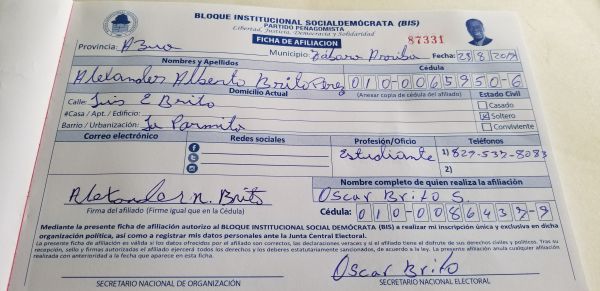 BLOQUE INSTITUCIONAL SOCIALDEMÓCRATA (BIS)
PARTIDO PEÑAGOMISTA
Libertad, Justicia, Democracia y Solidaridad
FICHA DE AFILIACION 87331
Provincia: Azua Municipio: Fecha: 23/8/2019
Nombres y Apellidos Cédula
Alexander Alberto Brito Perez 010-0065950-6
Domicilio Actual (Anexar copia de cédula del afiliado) Estado Civil
Calle: Luis E Brito Casado
#Casa / Apt. / Edificio: Soltero
Barrio / Urbanización: La Parmita Conviviente
Correo electrónico Redes sociales Profesión/Oficio Teléfonos
Estudiante 1) 829-537-8083
2)
Alexander A. Brito Nombre completo de quien realiza la afiliación
Oscar Brito S.
Firma del afiliado (Firme igual que en la Cédula) Cédula: 010-0086433-9
Mediante la presente ficha de afiliación autorizo al BLOQUE INSTITUCIONAL SOCIAL DEMÓCRATA (BIS) a realizar mi inscripción única y exclusiva en dicha
organización política, así como a registrar mis datos personales ante la Junta Central Electoral.
La presente ficha de afiliación es válida si los datos ofrecidos por el afiliado son correctos, las declaraciones veraces y si el afiliado tiene el disfrute de sus derechos civiles y políticos. Tras su
recepción, sello y firmas autorizadas el afiliado ejercerá todos los derechos y los deberes estatutariamente sancionados, de acuerdo a la ley. La presente afiliación anula cualquier afiliación
realizada con anterioridad a la fecha que aparece en esta ficha.
Oscar Brito
SECRETARIO NACIONAL DE ORGANIZACIÓN SECRETARIO NACIONAL ELECTORAL